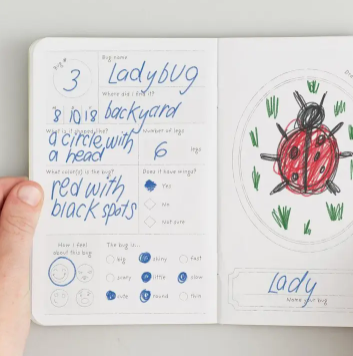 Bug #
3
Bug name
Ladybug
Where did I find it?
8 10 18 backyard
What is it shaped like?
a circle with
a head
Number of legs
6 legs
What color(s) is the bug?
red with
black spots
Does it have wings?
Yes
No
Not sure
How I feel
about this bug
The bug is...
big shiny fast
scary little slow
cute round fun
Lady
Name your bug